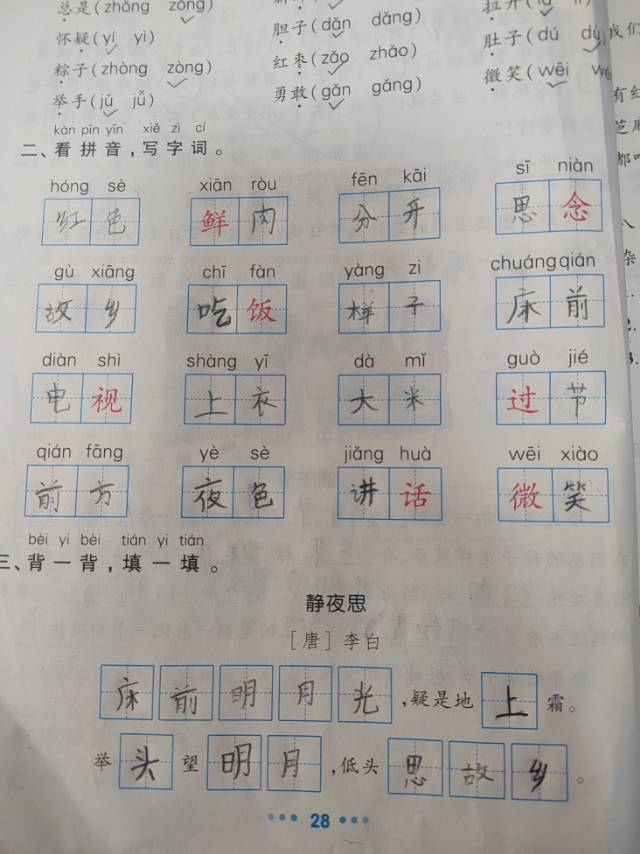 总是(zhǒng zǒng)
怀疑(yí yì) 胆子(dǎn dǎng)
粽子(zhòng zòng) 红枣(zǎo zhǎo) 肚子(dú dù) 我们
举手(jǔ jǚ) 勇敢(gǎn gǎng) 微笑(wēi
有红
kàn pīn yīn xiě zì cí
二、看拼音,写字词。
hóng sè xiān ròu fēn kāi sī niàn
红色 鲜肉 分开 思念
gù xiāng chī fàn yàng zi chuáng qián
故乡 吃饭 样子 床前
diàn shì shàng yī dà mǐ guò jié
电视 上衣 大米 过节
qián fāng yè sè jiǎng huà wēi xiào
前方 夜色 讲话 微笑
bèi yi bèi tián yi tián
三、背一背,填一填。
静夜思
[唐]李白
床前明月光,疑是地上霜。
举头望明月,低头思故乡。
28